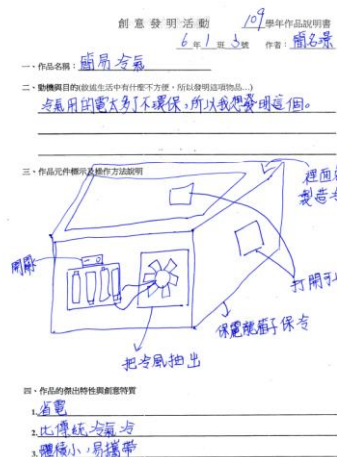 創意發明活動 109學年作品說明書
6年1班3號 作者：簡名景
一、作品名稱：簡易冷氣
二、動機與目的(敘述生活中有什麼不方便，所以發明這項物品...)
冷氣用的電太多了不環保，所以我想發明這個。
三、作品元件標示及操作方法說明
裡面
製造
開關
打開
保麗龍箱子保冷
把冷風抽出
四、作品的傑出特性與創意特質
1.省電
2.比傳統冷氣冷
3.體積小，易攜帶